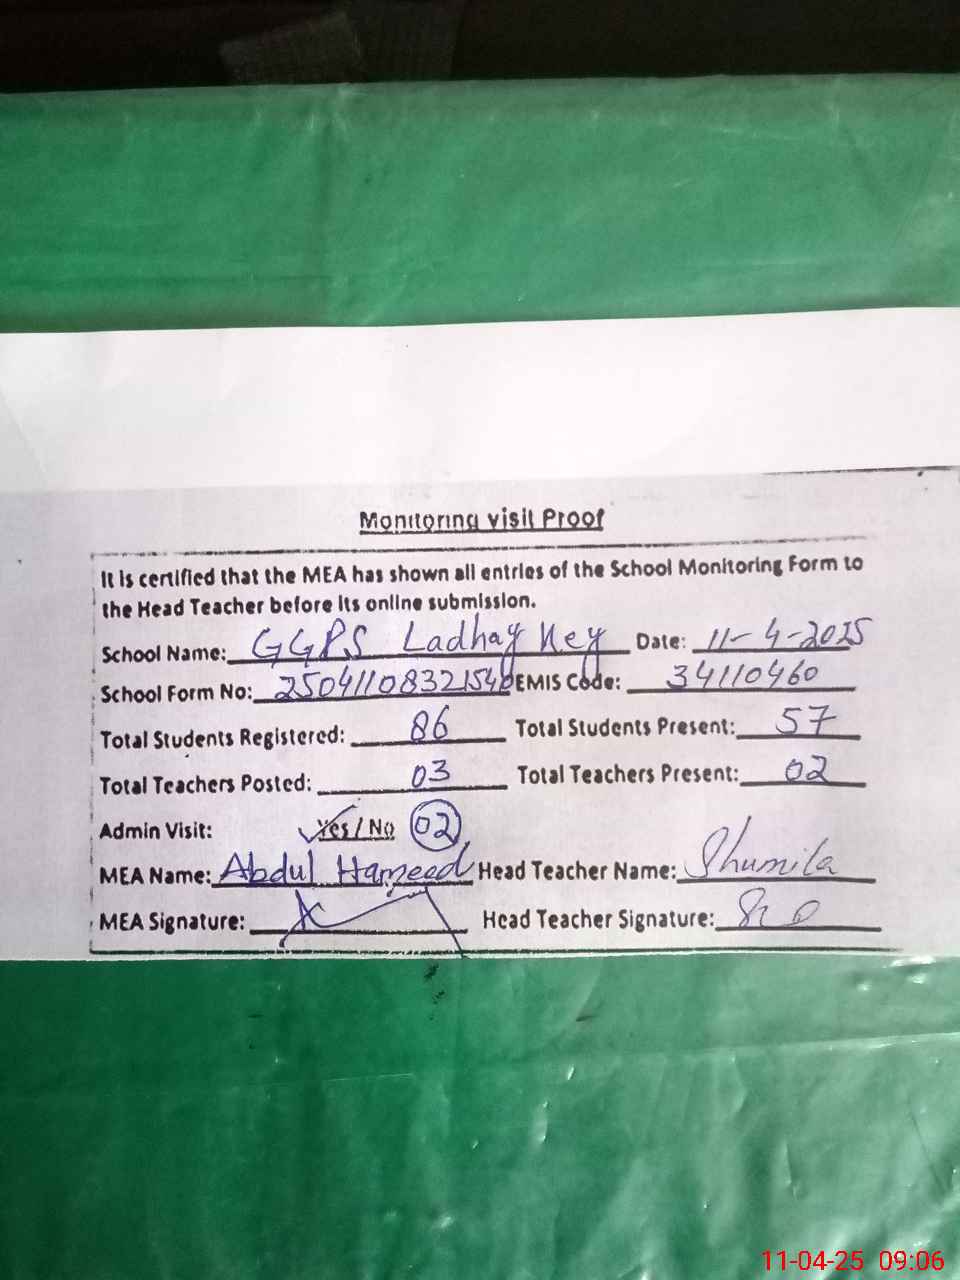 Monitoring visit Proof
It is certified that the MEA has shown all entries of the School Monitoring Form to
the Head Teacher before its online submission.
School Name: GGPS Ladhay Key Date: 11-4-2025
School Form No: EMIS Code: 34110460
Total Students Registered: 86 Total Students Present: 57
Total Teachers Posted: 03 Total Teachers Present: 02
Admin Visit: Yes / No 02
MEA Name: Abdul Hameed Head Teacher Name: Shumila
MEA Signature: Head Teacher Signature:
11-04-25 09:06